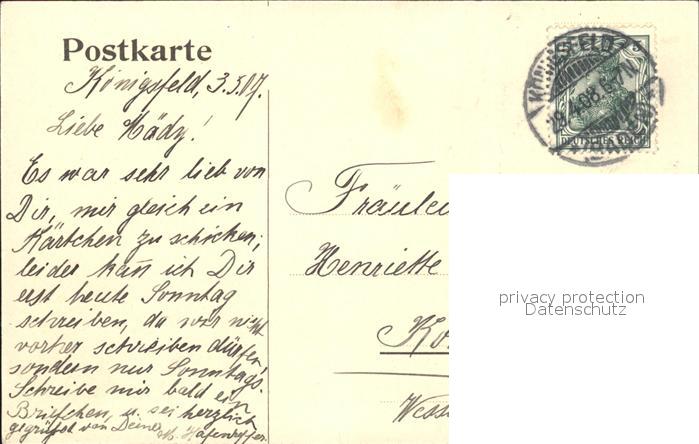 Postkarte
Königsfeld, 3.5.07.
Liebe Mädy!
Es war sehr lieb von
Dir, mir gleich ein
Kärtchen zu schicken;
leider kan̄ ich Dir
erst heute Sonntag
schreiben, da wir nicht
vorher schreiben dürfen
sondern nur Sonntags!
Schreibe mir bald ein
Briefchen, u. sei herzlich
gegrüßt von Deiner
KÖNIGSFELD
DEUTSCHES REICH
5
Fräulei
Henriette
Kö
Wess
privacy protection
Datenschutz